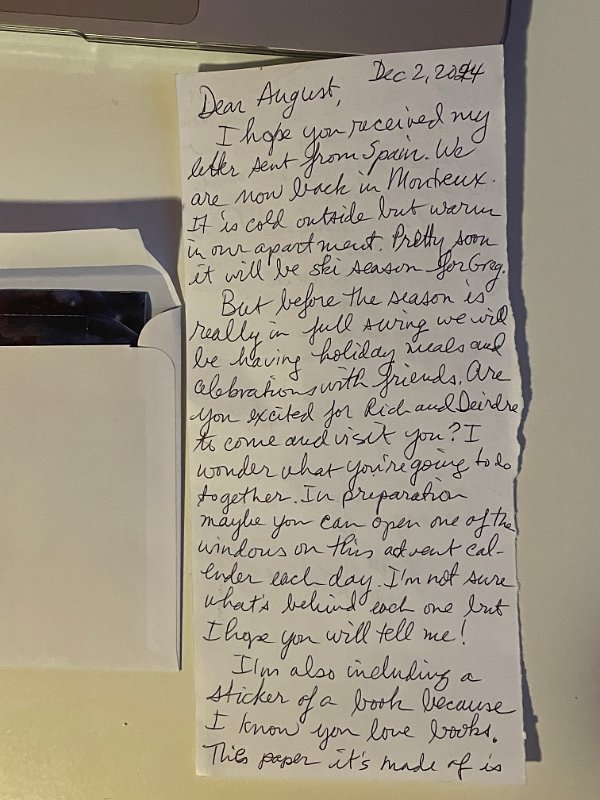 Dec 2, 2024
Dear August,
I hope you received my
letter sent from Spain. We
are now back in Montreux.
It is cold outside but warm
in our apartment. Pretty soon
it will be ski season for Greg.
But before the season is
really in full swing we will
be having holiday meals and
celebrations with friends. Are
you excited for Rich and Deirdre
to come and visit you? I
wonder what you're going to do
together. In preparation
maybe you can open one of the
windows on this advent cal-
ender each day. I'm not sure
what's behind each one but
I hope you will tell me!
I'm also including a
sticker of a book because
I know you love books.
This paper it's made of is